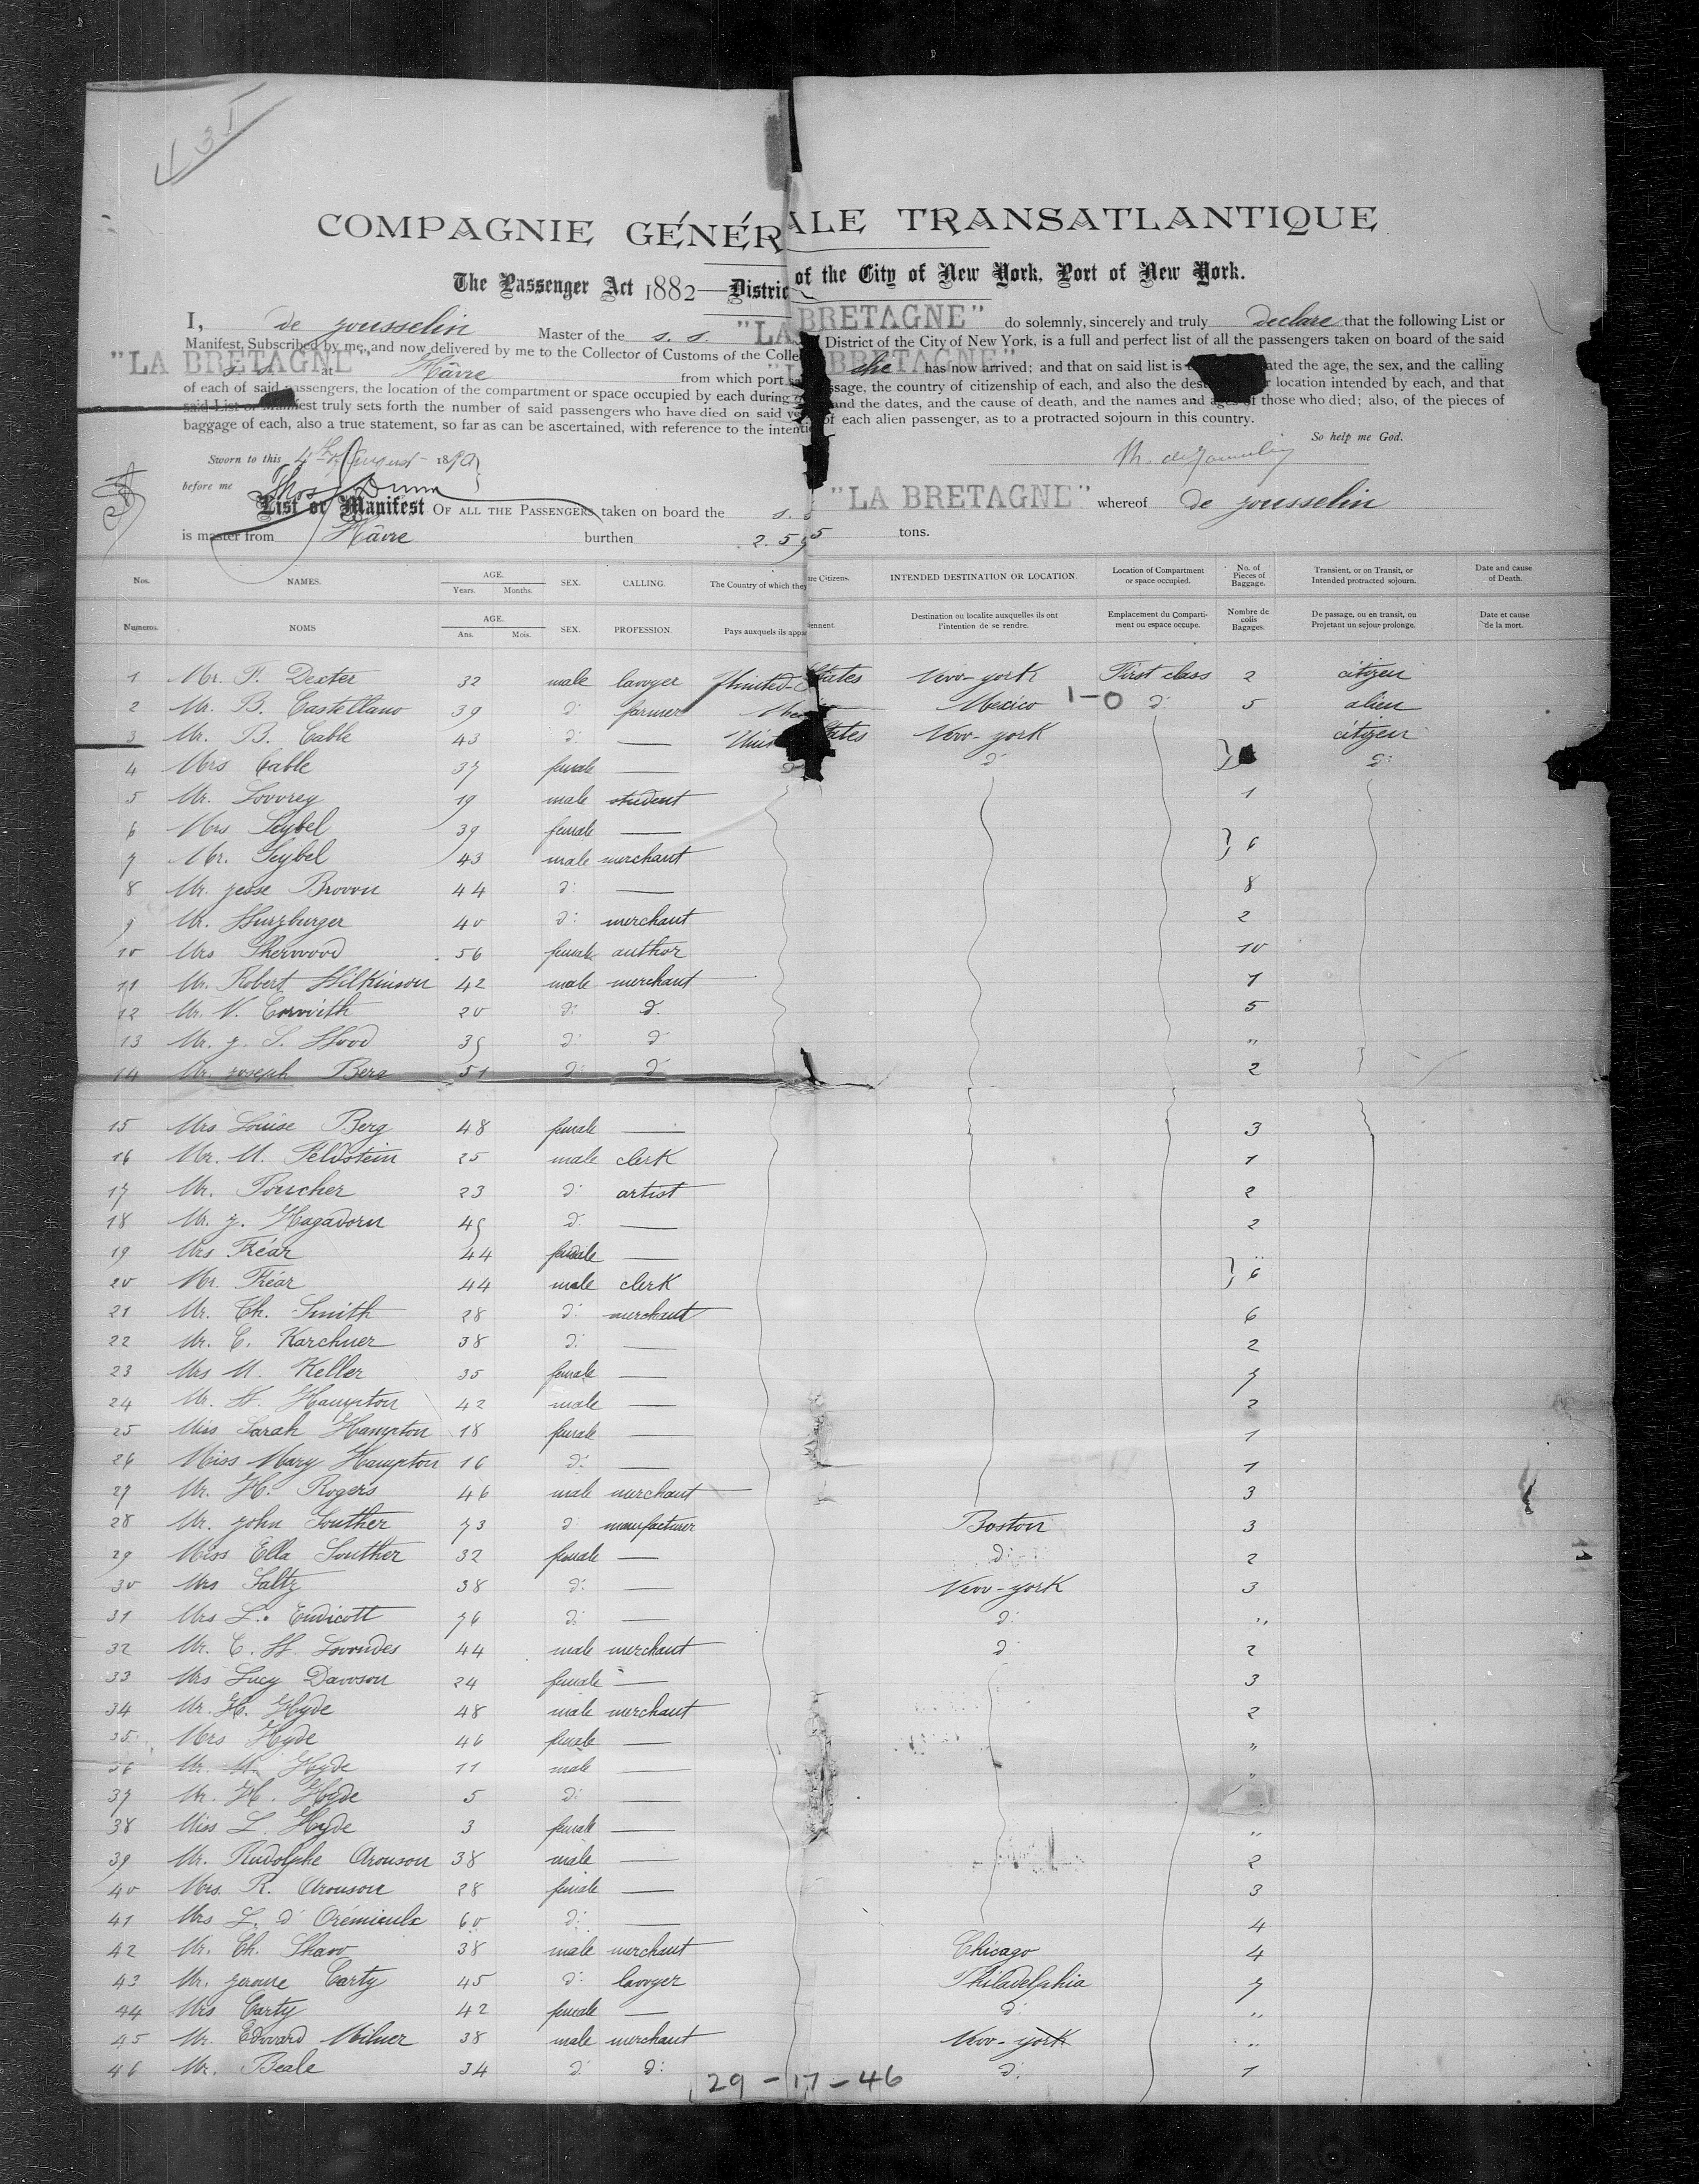 √ 35
COMPAGNIE GÉNÉRALE TRANSATLANTIQUE
The Passenger Act 1882—District of the City of New York, Port of New York.
I, de jousselin Master of the s. s. "LA BRETAGNE" do solemnly, sincerely and truly declare that the following List or
Manifest, Subscribed by me, and now delivered by me to the Collector of Customs of the Colle District of the City of New York, is a full and perfect list of all the passengers taken on board of the said
"LA BRETAGNE" s. s. at Hâvre from which port she has now arrived; and that on said list is ated the age, the sex, and the calling
of each of said passengers, the location of the compartment or space occupied by each during ssage, the country of citizenship of each, and also the dest r location intended by each, and that
said List or Manifest truly sets forth the number of said passengers who have died on said and the dates, and the cause of death, and the names and ages of those who died; also, of the pieces of
baggage of each, also a true statement, so far as can be ascertained, with reference to the intenti of each alien passenger, as to a protracted sojourn in this country.
So help me God.
Sworn to this 4th August 1890
before me Thos Dunn
List or Manifest OF ALL THE PASSENGERS taken on board the s. s "LA BRETAGNE" whereof de jousselin
is master from Hâvre burthen 2.595 tons.
Nos. NAMES. AGE. Years. Months. SEX. CALLING. The Country of which they are Citizens. INTENDED DESTINATION OR LOCATION. Location of Compartment or space occupied. No. of Pieces of Baggage. Transient, or on Transit, or Intended protracted sojourn. Date and cause of Death.
Numeros. NOMS AGE. Ans. Mois. SEX. PROFESSION. Pays auxquels ils appartiennent. Destination ou localite auxquelles ils ont l'intention de se rendre. Emplacement du Comparti- ment ou espace occupe. Nombre de colis Bagages. De passage, ou en transit, ou Projetant un sejour prolonge. Date et cause de la mort.
1 Mr. F. Dexter 32 male lawyer United-States New-york First class 2 citizen
2 Mr. B. Castellano 39 d: farmer Mexico 1-0 d: 5 alien
3 Mr. B. Cable 43 d: — States New-york citizen
4 Mrs Cable 37 female — d: d:
5 Mr. Lowrey 19 male student 1
6 Mrs Seybel 39 female —
7 Mr. Seybel 43 male merchant } 6
8 Mr. jesse Brown 44 d: — 8
9 Mr. Wurzburger 40 d: merchant 2
10 Mrs Sherwood 56 female author 10
11 Mr. Robert Wilkinson 42 male merchant 1
12 Mr. N. Corwith 20 d: d. 5
13 Mr. j. S. Wood 35 d: d "
14 Mr. joseph Berg 51 d: d 2
15 Mrs Louise Berg 48 female — 3
16 Mr. M. Feldstein 25 male clerk 1
17 Mr. Poucher 23 d: artist 2
18 Mr. j. Hagadorn 45 d: — 2
19 Mrs Fréar 44 female —
20 Mr. Fréar 44 male clerk } 6
21 Mr. Ch. Smith 28 d: merchant 6
22 Mr. C. Karchner 38 d: — 2
23 Mrs M. Keller 35 female — 7
24 Mr. W. Hampton 42 male — 2
25 Miss Sarah Hampton 18 female — 1
26 Miss Mary Hampton 16 d: — 1
27 Mr. H. Rogers 46 male merchant 3
28 Mr. john Souther 73 d: manufacturer Boston 3
29 Miss Ella Souther 32 female — d: 2
30 Mrs Saltz 38 d: — New-york 3
31 Mrs L. Endicott 76 d: — d: "
32 Mr. C. W. Lowndes 44 male merchant d 2
33 Mrs Lucy Dawson 24 female — 3
34 Mr. H. Hyde 48 male merchant 2
35 Mrs Hyde 46 female — "
36 Mr. M. Hyde 11 male — "
37 Mr. H. Hyde 5 d: —
38 Miss L. Hyde 3 female — "
39 Mr. Rudolphe Aronson 38 male — 2
40 Mrs. R. Aronson 28 female — 3
41 Mrs L. d' Orémieulx 60 d: — 4
42 Mr. Ch. Shaw 38 male merchant Chicago 4
43 Mr. jerome Carty 45 d: lawyer Philadelphia 7
44 Mrs Carty 42 female — d: "
45 Mr. Edward Milner 38 male merchant New-york "
46 Mr. Beale 34 d: d: d: 1
29-17-46